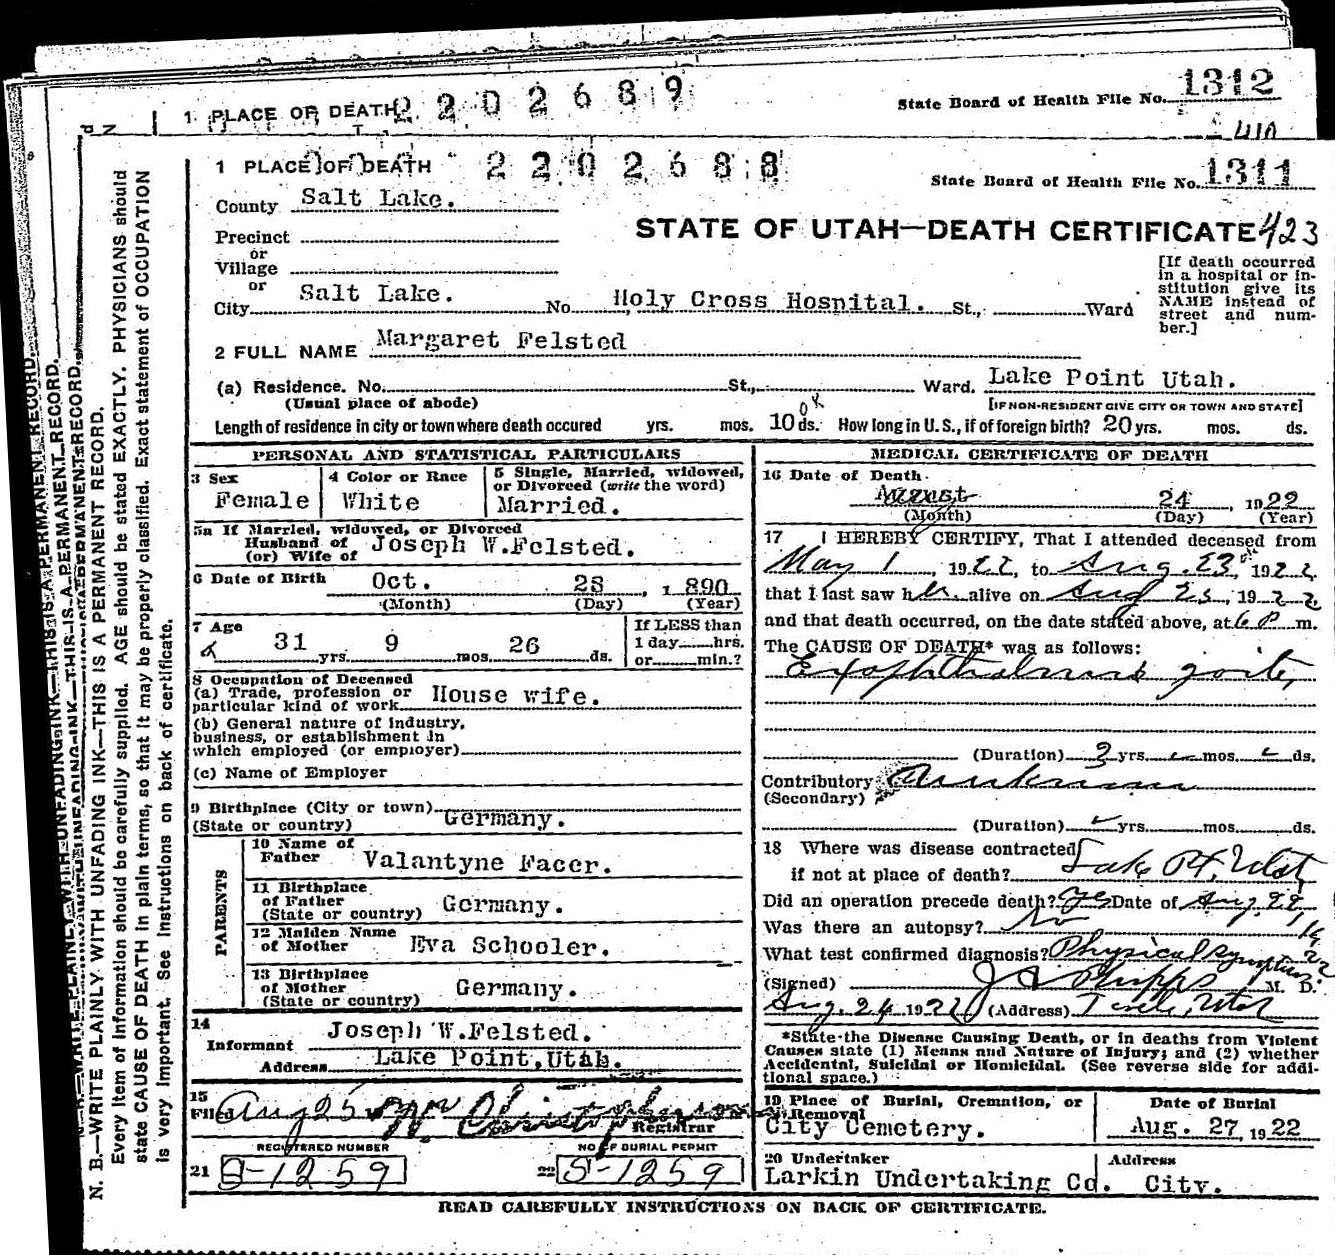 1 PLACE OF DEATH 2202689 State Board of Health File No. 1312
1 PLACE OF DEATH 2202688 State Board of Health File No. 1311
County Salt Lake.
STATE OF UTAH—DEATH CERTIFICATE 423
Precinct
or
Village
or
City Salt Lake. No. Holy Cross Hospital. St., Ward
[If death occurred
in a hospital or in-
stitution give its
NAME instead of
street and num-
ber.]
2 FULL NAME Margaret Felsted
(a) Residence. No. St., Ward. Lake Point Utah.
(Usual place of abode) [IF NON-RESIDENT GIVE CITY OR TOWN AND STATE]
Length of residence in city or town where death occured yrs. mos. 10 ds. How long in U. S., if of foreign birth? 20 yrs. mos. ds.
PERSONAL AND STATISTICAL PARTICULARS
3 Sex Female
4 Color or Race White
5 Single, Married, widowed,
or Divorced (write the word)
Married.
5a If Married, widowed, or Divorced
Husband of
(or) Wife of Joseph W.Felsted.
6 Date of Birth Oct. 28, 1890
(Month) (Day) (Year)
7 Age 31 yrs. 9 mos. 26 ds.
If LESS than
1 day hrs.
or min.?
8 Occupation of Deceased
(a) Trade, profession or
particular kind of work House wife.
(b) General nature of industry,
business, or establishment in
which employed (or employer)
(c) Name of Employer
9 Birthplace (City or town)
(State or country) Germany.
PARENTS
10 Name of
Father Valantyne Facer.
11 Birthplace
of Father
(State or country) Germany.
12 Maiden Name
of Mother Eva Schooler.
13 Birthplace
of Mother
(State or country) Germany.
14
Informant Joseph W.Felsted.
Address Lake Point,Utah.
15
Filed Aug 25 Christopherson
Registrar
REGISTERED NUMBER NO OF BURIAL PERMIT
21 S-1259 22 S-1259
MEDICAL CERTIFICATE OF DEATH
16 Date of Death
August 24, 1922
(Month) (Day) (Year)
17 I HEREBY CERTIFY, That I attended deceased from
May 1, 1922, to Aug. 23, 1922
that I last saw her alive on Aug 23, 1922
and that death occurred, on the date stated above, at 6 P m.
The CAUSE OF DEATH* was as follows:
Exophthalmus goiter
(Duration) yrs. mos. ds.
Contributory
(Secondary)
(Duration) yrs. mos. ds.
18 Where was disease contracted
if not at place of death? Lake Pt. Utah
Did an operation precede death? Yes Date of Aug. 22, 1922
Was there an autopsy? No
What test confirmed diagnosis? Physical symptoms
(Signed) J A Phipps M. D.
Aug. 24 1922 (Address) Tooele, Utah
*State the Disease Causing Death, or in deaths from Violent
Causes state (1) Means and Nature of Injury; and (2) whether
Accidental, Suicidal or Homicidal. (See reverse side for addi-
tional space.)
19 Place of Burial, Cremation, or
Removal
City Cemetery.
Date of Burial
Aug. 27, 1922
20 Undertaker
Larkin Undertaking Co.
Address
City.
READ CAREFULLY INSTRUCTIONS ON BACK OF CERTIFICATE.
N. B.—WRITE PLAINLY WITH UNFADING INK—THIS IS A PERMANENT RECORD.
Every item of information should be carefully supplied. AGE should be stated EXACTLY. PHYSICIANS should
state CAUSE OF DEATH in plain terms, so that it may be properly classified. Exact statement of OCCUPATION
is very important. See instructions on back of certificate.